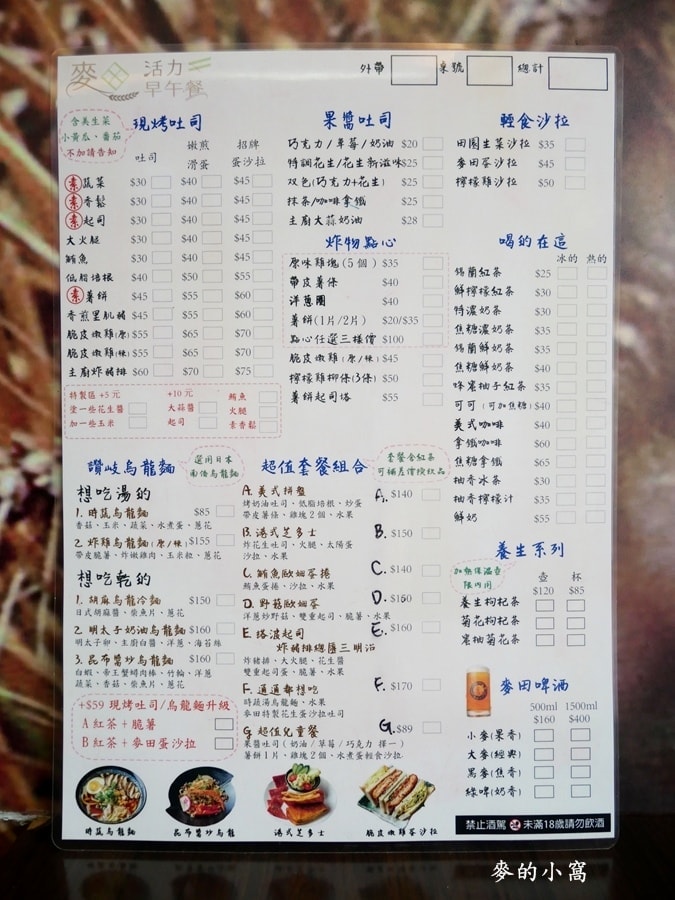 麥田 活力早午餐
外帶 桌號 總計
含美生菜
小黃瓜、番茄
不加請告知
現烤吐司
吐司 嫩煎滑蛋 招牌蛋沙拉
素 蔬菜 $30 $40 $45
素 香鬆 $30 $40 $45
素 起司 $30 $40 $45
大火腿 $30 $40 $45
鮪魚 $30 $40 $45
低脂培根 $40 $50 $55
素 薯餅 $45 $55 $60
香煎里肌豬 $45 $55 $60
脆皮嫩雞(原) $55 $65 $70
脆皮嫩雞(辣) $55 $65 $70
主廚炸豬排 $60 $70 $75
特製區 +5元 +10元 鮪魚
塗一些花生醬 大蒜醬 火腿
加一些玉米 起司 素香鬆
果醬吐司
巧克力/草莓/奶油 $20
特調花生/花生新滋味 $25
双色(巧克力+花生) $25
抹茶/咖啡拿鐵 $25
主廚大蒜奶油 $28
炸物點心
原味雞塊(5個) $35
帶皮薯條 $40
洋蔥圈 $40
薯餅(1片/2片) $20/$35
點心任選三樣價 $100
脆皮嫩雞(原/辣) $45
檸檬雞柳條(3條) $50
薯餅起司塔 $55
輕食沙拉
田園生菜沙拉 $35
麥田蛋沙拉 $45
檸檬雞沙拉 $50
喝的在這
冰的 熱的
錫蘭紅茶 $25
鮮檸檬紅茶 $30
特濃奶茶 $30
焦糖濃奶茶 $35
錫蘭鮮奶茶 $35
焦糖鮮奶茶 $40
蜂蜜柚子紅茶 $35
可可(可加焦糖) $40
美式咖啡 $40
拿鐵咖啡 $60
焦糖拿鐵 $65
柚香冰茶 $30
柚香檸檬汁 $35
鮮奶 $55
讚岐烏龍麵
選用日本
南僑烏龍麵
想吃湯的
1. 時蔬烏龍麵 $85
香菇、玉米、蔬菜、水煮蛋、蔥花
2. 炸雞烏龍麵(原/辣) $155
帶皮脆薯、炸嫩雞肉、玉米粒、蔥花
想吃乾的
1. 胡麻烏龍冷麵 $150
日式胡麻醬、柴魚片、蔥花
2. 明太子奶油烏龍麵 $160
明太子卵、主廚白醬、洋蔥、海苔絲
3. 昆布醬炒烏龍麵 $160
白蝦、帝王蟹味肉棒、竹輪、洋蔥
蔬菜、香菇、柴魚片、蔥花
+$59 現烤吐司/烏龍麵升級
A 紅茶+脆薯
B 紅茶+麥田蛋沙拉
超值套餐組合
套餐含紅茶
可補差價換飲品
A. 美式拼盤 A. $140
烤奶油吐司、低脂培根、炒蛋
帶皮薯條、雞塊2個、水果
B. 港式芝多士 B. $150
炸花生吐司、火腿、太陽蛋
沙拉、水果
C. 鮪魚歐姆蛋捲 C. $140
鮪魚蛋捲、沙拉、水果
D. 野菇歐姆蛋 D. $150
洋蔥炒野菇、雙重起司、脆薯、水果
E. 塔波起司 E. $160
炸豬排總匯三明治
炸豬排、大火腿、花生醬
雙重起司蛋、脆薯、水果
F. 通通都想吃 F. $170
時蔬湯烏龍麵、水果
麥田特製花生蛋沙拉吐司
G. 超值兒童餐 G. $89
果醬吐司(奶油/草莓/巧克力 擇一)
薯餅1片、雞塊2個、水煮蛋輕食沙拉
養生系列
加熱保溫壺
限內用
壺 杯
$120 $85
養生枸杞茶
菊花枸杞茶
蜜柚菊花茶
麥田啤酒
500ml 1500ml
$160 $400
小麥(果香)
大麥(經典)
黑麥(焦香)
綠啤(奶香)
時蔬烏龍麵 昆布醬炒烏龍 港式芝多士 脆皮嫩雞蛋沙拉
禁止酒駕 未滿18歲請勿飲酒
麥的小窩